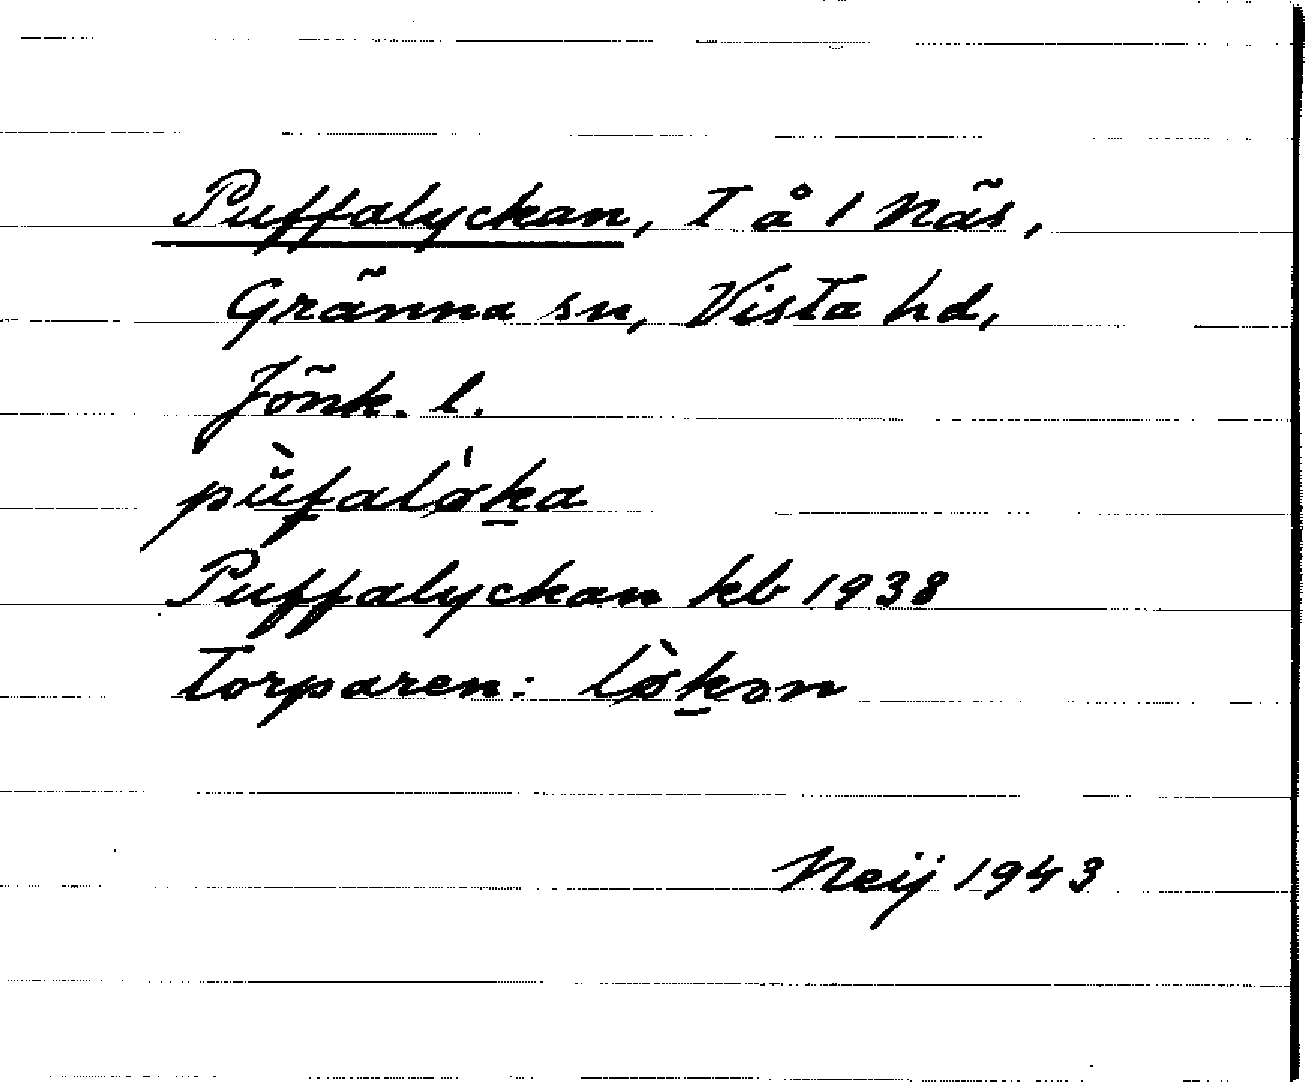 Puffalyckan, T å 1 Näs,
Gränna sn, Vista hd,
Jönk. l.
pùfalø̍ḵa
Puffalyckan kb 1938
torparen: lø̀ḵən
Neij 1943